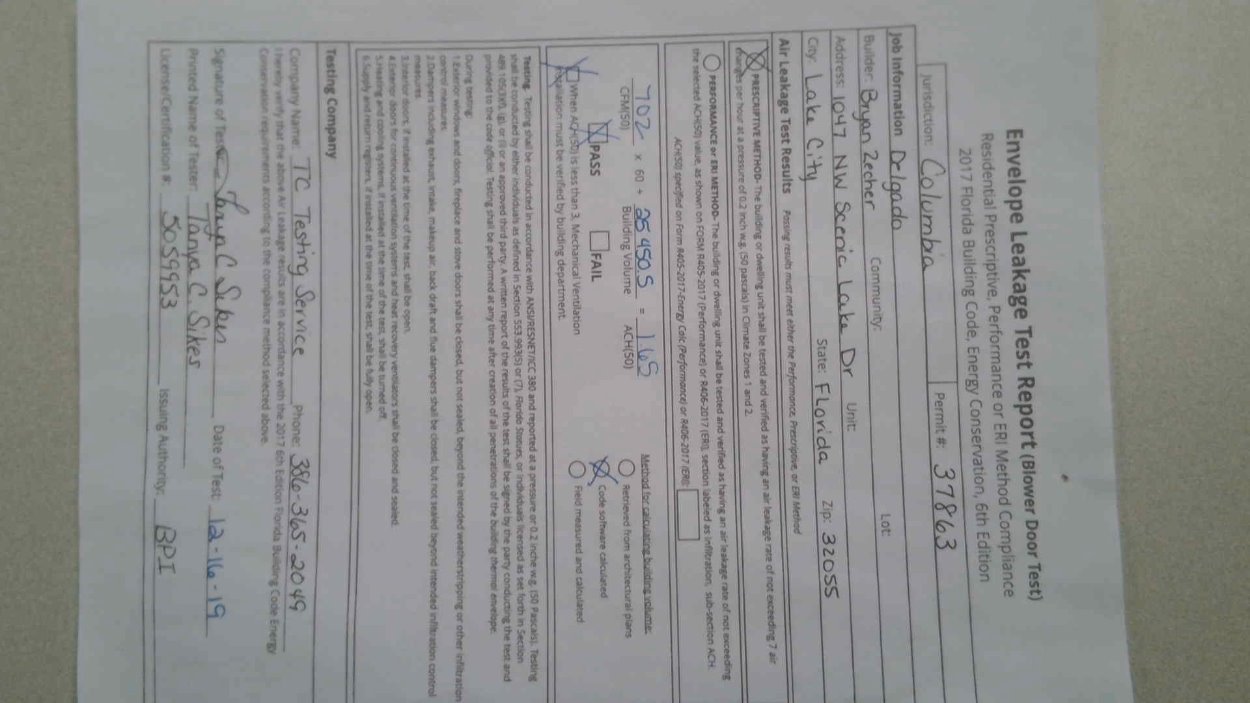 Envelope Leakage Test Report (Blower Door Test)
Residential Prescriptive, Performance or ERI Method Compliance
2017 Florida Building Code, Energy Conservation, 6th Edition
Jurisdiction: Columbia Permit #: 37863
Job Information Delgado
Builder: Bryan Zecher Community: Lot:
Address: 1047 NW Scenic Lake Dr Unit:
City: Lake City State: Florida Zip: 32055
Air Leakage Test Results Passing results must meet either the Performance, Prescriptive, or ERI Method
PRESCRIPTIVE METHOD- The building or dwelling unit shall be tested and verified as having an air leakage rate of not exceeding 7 air
changes per hour at a pressure of 0.2 inch w.g. (50 pascals) in Climate Zones 1 and 2.
PERFORMANCE or ERI METHOD- The building or dwelling unit shall be tested and verified as having an air leakage rate of not exceeding
the selected ACH(50) value, as shown on FORM R405-2017 (Performance) or R406-2017 (ERI), section labeled as infiltration, sub-section ACH.
ACH(50) specified on Form R405-2017-Energy Calc (Performance) or R406-2017 (ERI):
702 x 60 ÷ 25450.5 = 1.65
CFM(50) Building Volume ACH(50)
PASS FAIL
When ACH(50) is less than 3, Mechanical Ventilation
installation must be verified by building department.
Method for calculating building volume:
Retrieved from architectural plans
Code software calculated
Field measured and calculated
Testing. Testing shall be conducted in accordance with ANSI/RESNET/ICC 380 and reported at a pressure or 0.2 inche w.g. (50 Pascals). Testing
shall be conducted by either individuals as defined in Section 553.993(5) or (7), Florida Statues, or individuals licensed as set forth in Section
489.105(3)(f), (g), or (i) or an approved third party. A written report of the results of the test shall be signed by the party conducting the test and
provided to the code official. Testing shall be performed at any time after creation of all penetrations of the building thermel envelope.
During testing:
1.Exterior windows and doors, fireplace and stove doors shall be closed, but not sealed, beyond the intended weatherstripping or other infiltration
control measures.
2.Dampers including exhaust, intake, makeup air, back draft and flue dampers shall be closed, but not sealed beyond intended infiltration control
measures.
3.Interior doors, if installed at the time of the test, shall be open.
4.Exterior doors for continuous ventilation systems and heat recovery ventilators shall be closed and sealed.
5.Heating and cooling systems, if installed at the time of the test, shall be turned off.
6.Supply and return registers, if installed at the time of the test, shall be fully open.
Testing Company
Company Name: TC Testing Service Phone: 386-365-2049
I hereby verify that the above Air Leakage results are in accordance with the 2017 6th Edition Florida Building Code Energy
Conservation requirements according to the compliance method selected above.
Signature of Tester: Tanya C Sikes Date of Test: 12-16-19
Printed Name of Tester: Tanya C. Sikes
License/Certification #: 5059953 Issuing Authority: BPI